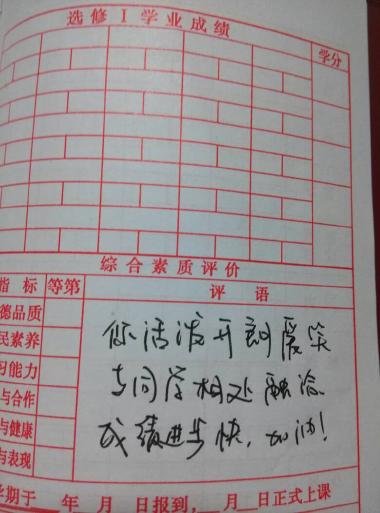 选修I学业成绩
学分
综合素质评价
指标 等第 评语
德品质
民素养
习能力
与合作
与健康
与表现
你活泼开朗爱笑
与同学相处融洽
成绩进步快,加油!
学期于 年 月 日报到, 月 日正式上课